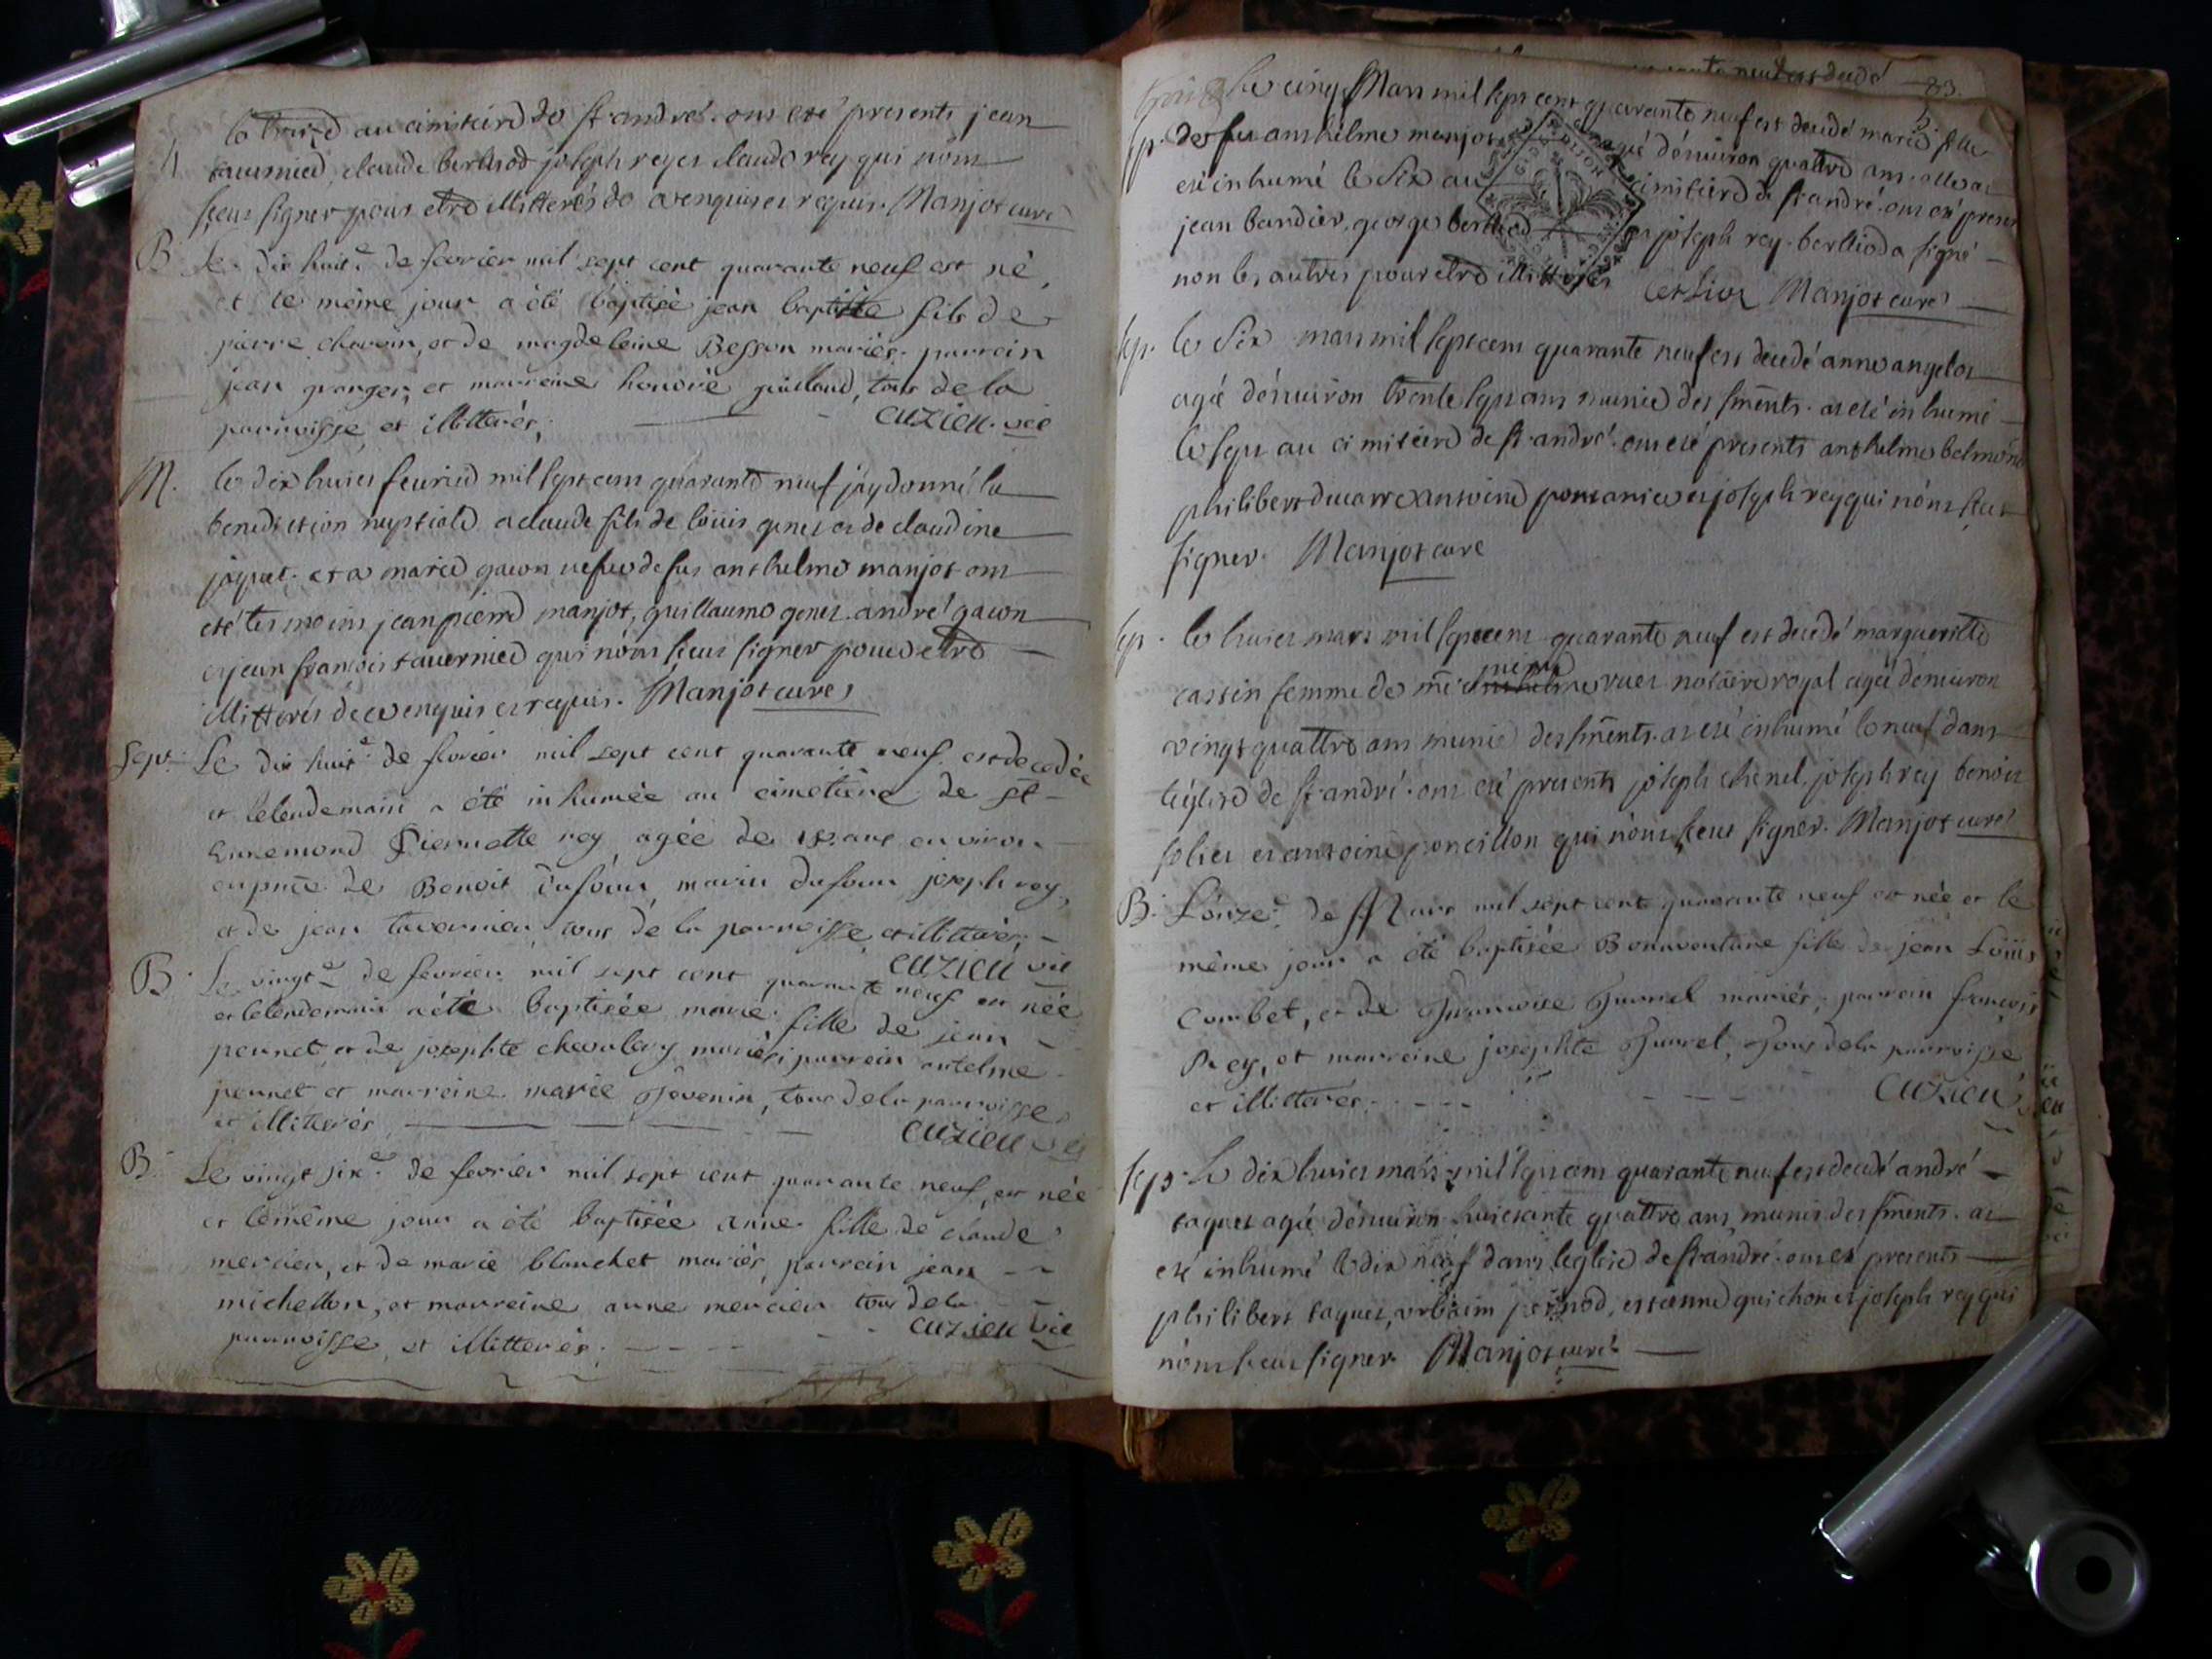 le treize au cimitiere de st andre. ont ete presents jean
tauernied, claude berthod joseph rey et claude rey qui n'ont
sceus signer pour etre illitterés de ce enquis et requis. Manjot curé
B Le dix huit.e de fevrier mil sept cent quarante neuf est né,
et le même jour a été baptisé jean baptiste fils de
pierre et de magdeleine Besson mariés. parrein
jean granger, et marreine honorée guillaud, tous de la
parroisse, et illitterés, cuzieu. vic
M. le dix huict feurier mil sept cens quarante neuf j'ay donné la
benediction nuptiale a claude fils de louis genet et de claudine
jaquet. et a marie gacon uefue de feu anthelme manjot ont
eté tesmoins jean pierre manjot, guillaume genet. andré gacon
et jean françois tauernied qui n'ont sceus signer pour etre
illitterés de ce enquis et requis. Manjot curé
Sepr. Le dix huit.e de fevrier mil sept cent quarante neuf. est decedée
et le lendemain a été inhumée au cimetiere de st
ennemond Pierrette rey agée de ans environ
en pnce de Benoit dufour, marin dufour joseph rey,
et de jean tavernier, tous de la parroisse, et illitterés,
cuzieu vic
B. Le vingt.e de fevrier mil sept cent quarante neuf est née
et le lendemain a été baptisée marie fille de jean
pernet et de josephte chevalery mariés, parrein antelme
pernet et marreine marie Thevenin, tous de la parroisse,
et illitterés, cuzieu vic
B. Le vingt six.e de fevrier mil sept cent quarante neuf, est née
et le même jour a été baptisée anne fille de claude
mercier, et de marie blanchet mariés, parrein jean
michellon, et marreine anne mercier tous de la
parroisse, et illitterés. cuzieu vic
83.
Le cinq Mars mil sept cent quarante neuf est decedé marie fille
sp. de feu anthelme manjot agé d'enuiron quattre ans. elle at
eté inhumé le six au cimitiere de st andré. ont eté presents
jean bandier, george berthod et joseph rey. berthod a signé
non les autres pour etre illitterés Manjot curé
sep. le six mars mil sept cens quarante neuf est decedé anne angelot
agée d'enuiron trente sept ans munie des smēnts. at eté inhumé
le sept au cimitiere de st andré. ont eté presents anthelme belmond
philibert ducarre antoine et joseph rey qui n'ont sceus
signer. Manjot curé
sep. le huict mars mil sept cens quarante neuf est decedé margueritte
cassin femme de me vuet notaire royal agé d'enuiron
vingt quattre ans munie des smēnts. at eté inhumé le neuf dans
l'eglise de st andré. ont eté presents joseph chenel. joseph rey benoit
et antoine poncillon qui n'ont sceus signer. Manjot curé
B. L'onze.e de Mars mil sept cent quarante neuf est née et le
même jour a été baptisée Bonaventure fille de jean Loüis
Combet, et de Françoise Juvenel mariés, parrein françois
Rey, et marreine josephte Tous de la parroisse
et illitterés. cuzieu
sep. Le dix huict mars mil sept cens quarante neuf est decedé andré
taquet agé d'enuiron quattre ans, munis des smēnts. at
eté inhumé le dix neuf dans leglise de st andré. ont eté presents
philibert taquet, etienne guichon et joseph rey qui
n'ont sceus signer Manjot curé